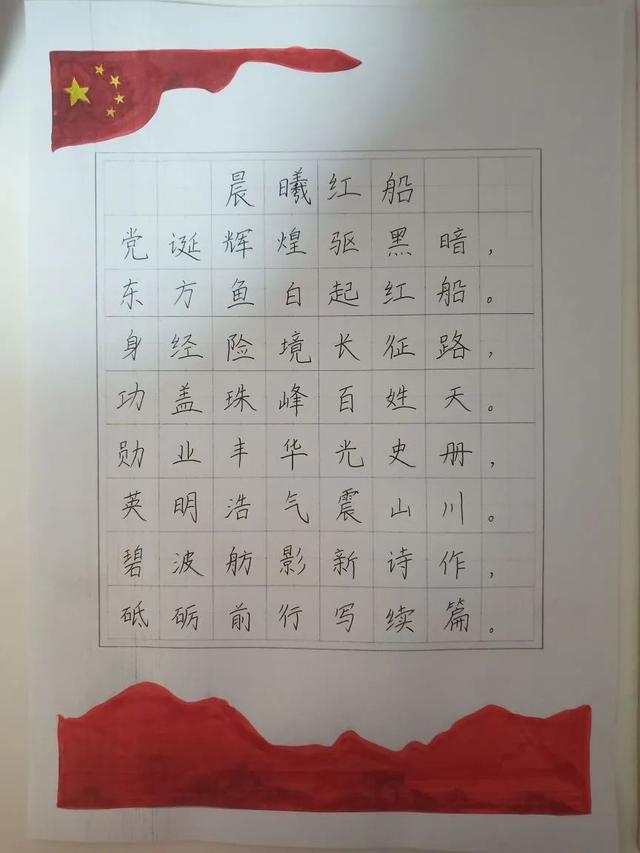 晨曦红船
党诞辉煌驱黑暗,
东方鱼白起红船。
身经险境长征路,
功盖珠峰百姓天。
勋业丰华光史册,
英明浩气震山川。
碧波舫影新诗作,
砥砺前行写续篇。